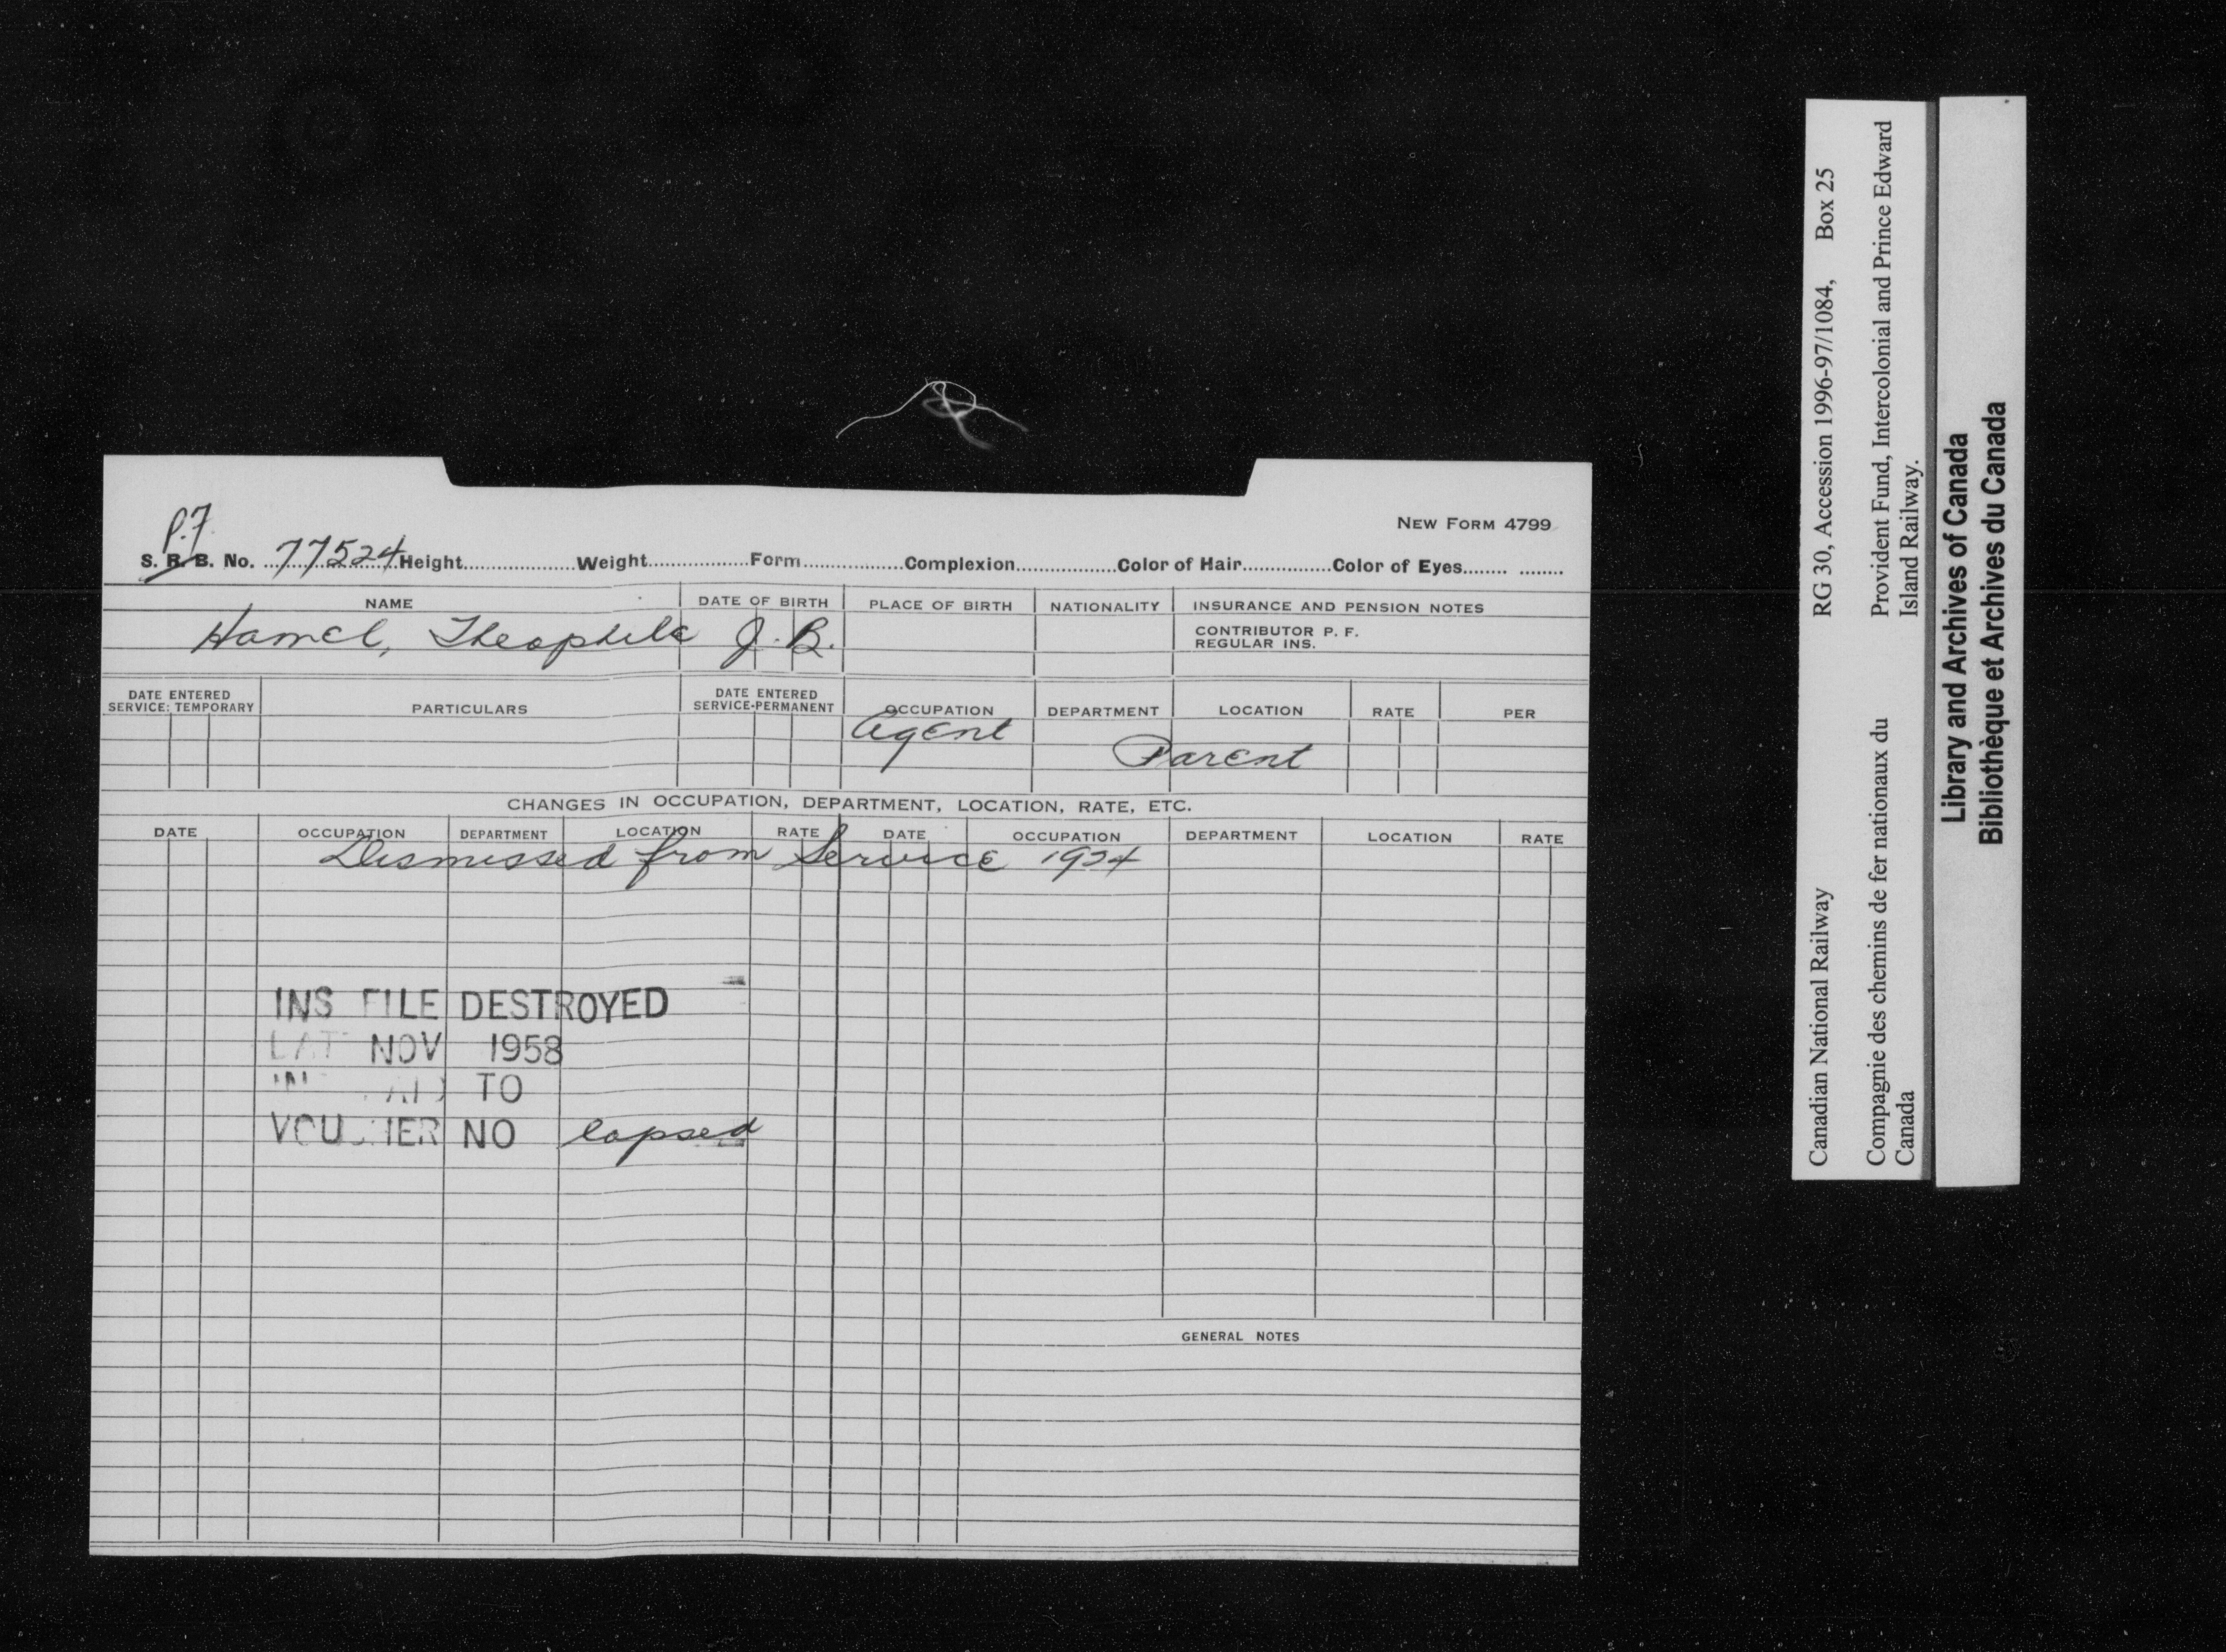 NEW FORM 4799
P.F.
S. R. B. No. 77524 Height Weight Form Complexion Color of Hair Color of Eyes
NAME DATE OF BIRTH PLACE OF BIRTH NATIONALITY INSURANCE AND PENSION NOTES
Hamel, Theophile J. B. CONTRIBUTOR P. F.
REGULAR INS.
DATE ENTERED SERVICE: TEMPORARY PARTICULARS DATE ENTERED SERVICE-PERMANENT OCCUPATION DEPARTMENT LOCATION RATE PER
Agent
Parent
CHANGES IN OCCUPATION, DEPARTMENT, LOCATION, RATE, ETC.
DATE OCCUPATION DEPARTMENT LOCATION RATE DATE OCCUPATION DEPARTMENT LOCATION RATE
Dismissed from Service 1924
INS FILE DESTROYED
NOV 1958
TO
VOUCHER NO lapsed
GENERAL NOTES
Canadian National Railway RG 30, Accession 1996-97/1084, Box 25
Compagnie des chemins de fer nationaux du Provident Fund, Intercolonial and Prince Edward
Canada Island Railway.
Library and Archives of Canada
Bibliothèque et Archives du Canada